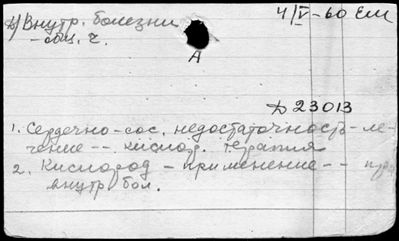 Внутр. болезни
4/V-60 Ем
- общ. ч.
А
Д 23013
1. Сердечно-сос. недостаточность - ле-
чение -- кислор. терапия
2. Кислород - применение -- при
внутр бол.